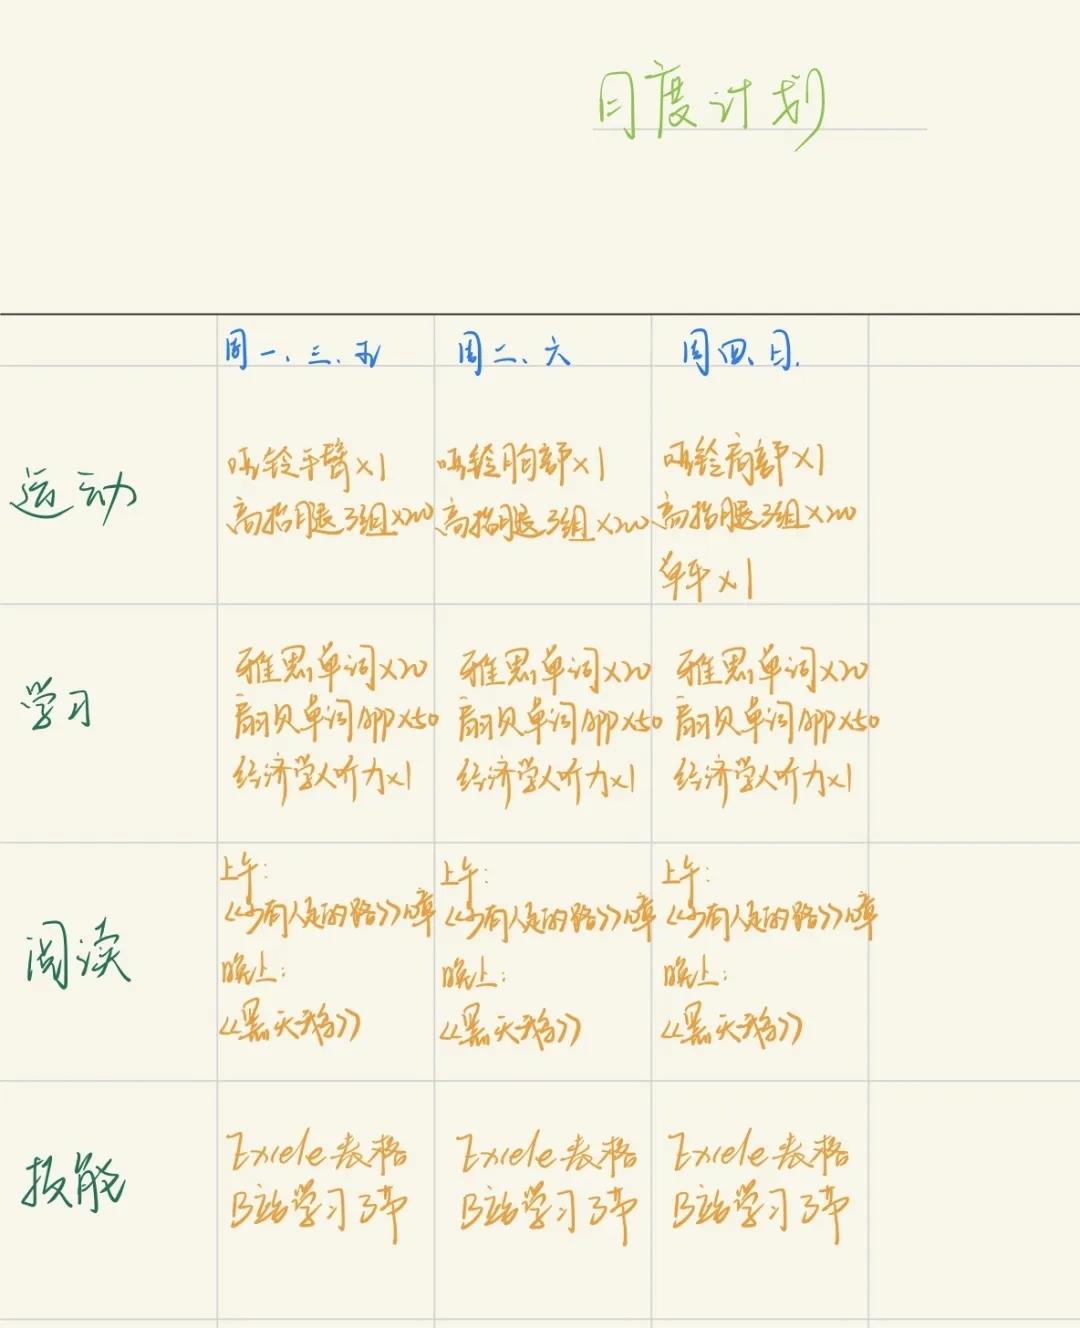 月度计划
周一、三、五 周二、六 周四、日.
运动
哑铃手臂×1
高抬腿3组×200
哑铃胸部×1
高抬腿3组×200
哑铃肩部×1
高抬腿3组×200
单车×1
学习
雅思单词×20
扇贝单词App×50
经济学人听力×1
雅思单词×20
扇贝单词App×50
经济学人听力×1
雅思单词×20
扇贝单词App×50
经济学人听力×1
阅读
上午:
《少有人走的路》1章
晚上:
《黑天鹅》
上午:
《少有人走的路》1章
晚上:
《黑天鹅》
上午:
《少有人走的路》1章
晚上:
《黑天鹅》
技能
Excele表格
B站学习3节
Excele表格
B站学习3节
Excele表格
B站学习3节